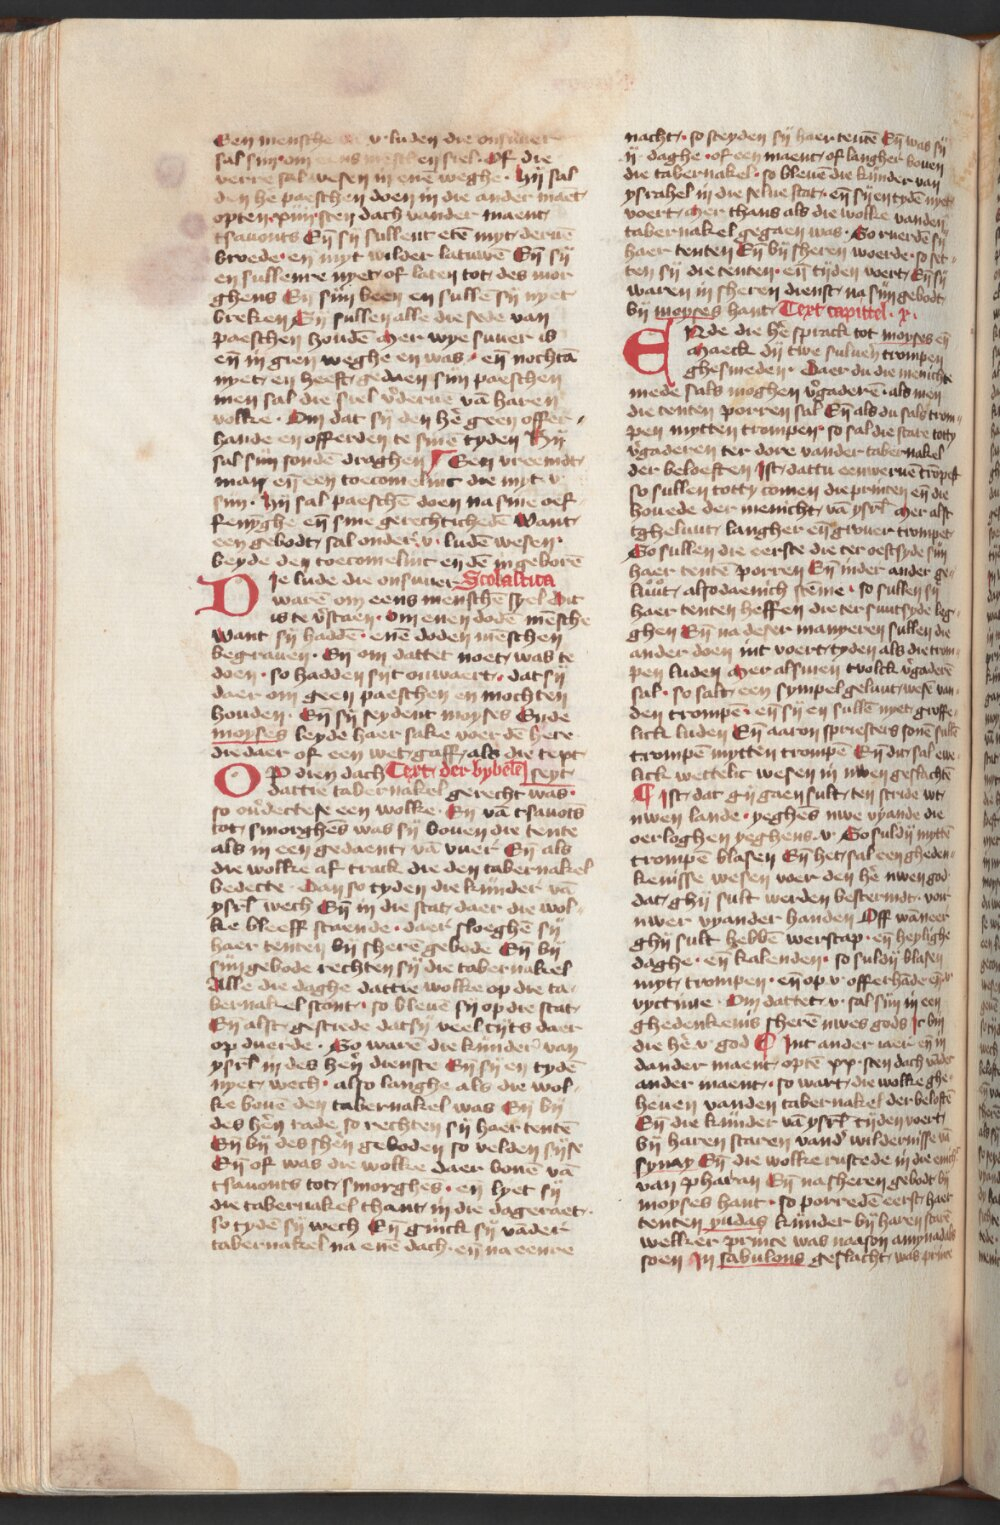 Een mensche v luden die onsuver
sal sijn om eens menschen siel · Of die
verre sal wesen in enē weghe · Hij sal
den hē paeschen doen in die ander maēt
opten xiiijsten dach vander maent
tsavonts Eñ sij sullent etē myt dervē
broede · en myt wilder latuwē Eñ sij
en sullenre nyet of laten tot des mor
ghens Eñ sijn been en sullē sij nyet
breken Sij sullen alle die sede van
paeschen houdē Mer wye suver is
eñ in gien weghe en was · eñ nochtā
nyet en heeft gedaen sijn paeschen
men sal die siel v̄dervē vā haren
volke · Om dat sij den hē geen offer
hande en offerden te sinē tyden Hij
sal sijn sondē draghen Een vreemdt
man eñ een toecomelinc die myt v
sijn · Hij sal paeschē doen na sine oef
feninghe eñ sine gerechtichedē Want
een gebodt sal onder v luden wesen
beyde den toecomelinc en dē ingeborē
Die lude die onsuver Scolastica
warē om eens menschē syel Dit
is te v̄staen · om enen dodē mēsche
Want sij haddē enē doden mēschen
begraven · Eñ om dattet noet was te
doen · so hadden sijt onwaert · dat sij
daer om geen paeschen en mochten
houden · Eñ sij seydent moyses Ende
moyses leyde haer sake voer dē here
die daer of een wet gaff als die text
OP dien dach Text der bybelē seyt
dattie tabernakel gerecht was ·
so ov̄dectese een wolke · Eñ vā tsavōts
tot smorghēs was sij boven die tente
als in een gedaent vā vuer Eñ als
die wolke af track die den tabernakel
bedecte · Dan so tyden die kijnder vā
ysrl wech Eñ in die stat daer die wol
ke bleeff staende · daer sloeghē sij
haer tenten bij sherē gebode Eñ bij
sijn gebode rechten sij die tabernakel
Alle die daghe dattie wolke op die ta
bernakel stont · so blevē sij op die stat
Eñ alst gesciede dat sij veel tijts daer
op duerde · So warē die kijnder van
ysrl in des herē dienste Eñ sij en tydē
nyet wech · also langhe als die wol
ke bovē den tabernakel was Eñ bij
des hēn rade so rechten sij haer tentē
Eñ bij des shēn geboden so velden sijse
Eñ of was die wolke daer bovē vā
tsavonts tot smorghēs · eñ lyet sij
die tabernakel thant in die dageraet ·
so tydē sij wech Eñ ginck sij vāder
tabernakel na enē dach · eñ na eenre
nacht · so sleyden sij haer tentē Eñ was sij
ij daghe · of een maent of langher boven
die tabernakel · so blevē die kijnder van
ysrahel in die selve stat · eñ sij en tydē nyet
voert Mer thans als die wolke vanden
tabernakel gegaen was · So ruerdē sij
haer tenten Eñ bij sheren woerde · so set
ten sij die tenten · eñ tijden voert Eñ sij
waren in sheren dienst na sijn gebodt
bij moyses hant Text capittel · x ·
ENde die hē sprack tot moyses eñ
Maeck dij twe sulven trompen
ghesmeden · Daer du die menichte
mede sals moghen v̄gaderē · als men
die tenten porren sal Eñ als du sals trom
pen mytten trompen · so sal die scare totty
v̄gaderen ter dore vander tabernakel
der beloeften Ist dattu eenwervē trōpest
so sullen totty comen die princen eñ die
hovede der menicht vā ysrl Mer alst
tgheluut langher eñ grover trompet
So sullen die eerste die ter oestsyde sijn
haer tentē porren Eñ inder ander ge
luut also daenich stēme · so sullen sij
haer tenten heffen die ter suutsyde leg
ghen Eñ na deser manyeren sullen die
ander doen int voert tyden als die trom
pen luden Mer als men tvolck v̄gaderē
sal · so salt een sympel geluut wesē van
den trompē · eñ sij en sullē nyet groffe
lick luden Eñ aaron spriesters sonē sullē
trompē mytten trompē Eñ dit sal ewe
lick wettelic wesen in uwen geslachtē
Ist dat gij gaen sult ten stride wt
uwen lande · yeghēs uwe vyande die
oerloghen yeghens v · So suldij myttē
trompē blasen Eñ het sal een gheden
kenisse wesen voer den hē uwen god
dat ghij sult werden bescermt · voir
uwer vyander handen Off wāneer
ghij sult hebbē werscap · eñ heylighe
daghe · eñ kalenden · so suldij blasen
myt trompen · eñ op v offerhāde eñ v
victime · Om dattet v sal sijn in een
ghedenkenis sherē uwes gods Ic bin
die hē v god Int ander iaer eñ in
dander maent optē xx sten dach vāder
ander maent · so wart die wolke ghe
heven vanden tabernakel der beloftē
Eñ die kijnder vā ysrl tijden voert
bij haren scaren vander wildernisse vā
synay Eñ die wolke rustede in die eenich
van pharan Eñ na sheren gebodt bij
moyses hant · so porredē eerst haer
tenten yudas kijnder bij haren scarē
welker prince was naason amynadabs
soen In sabulons geslacht was prince